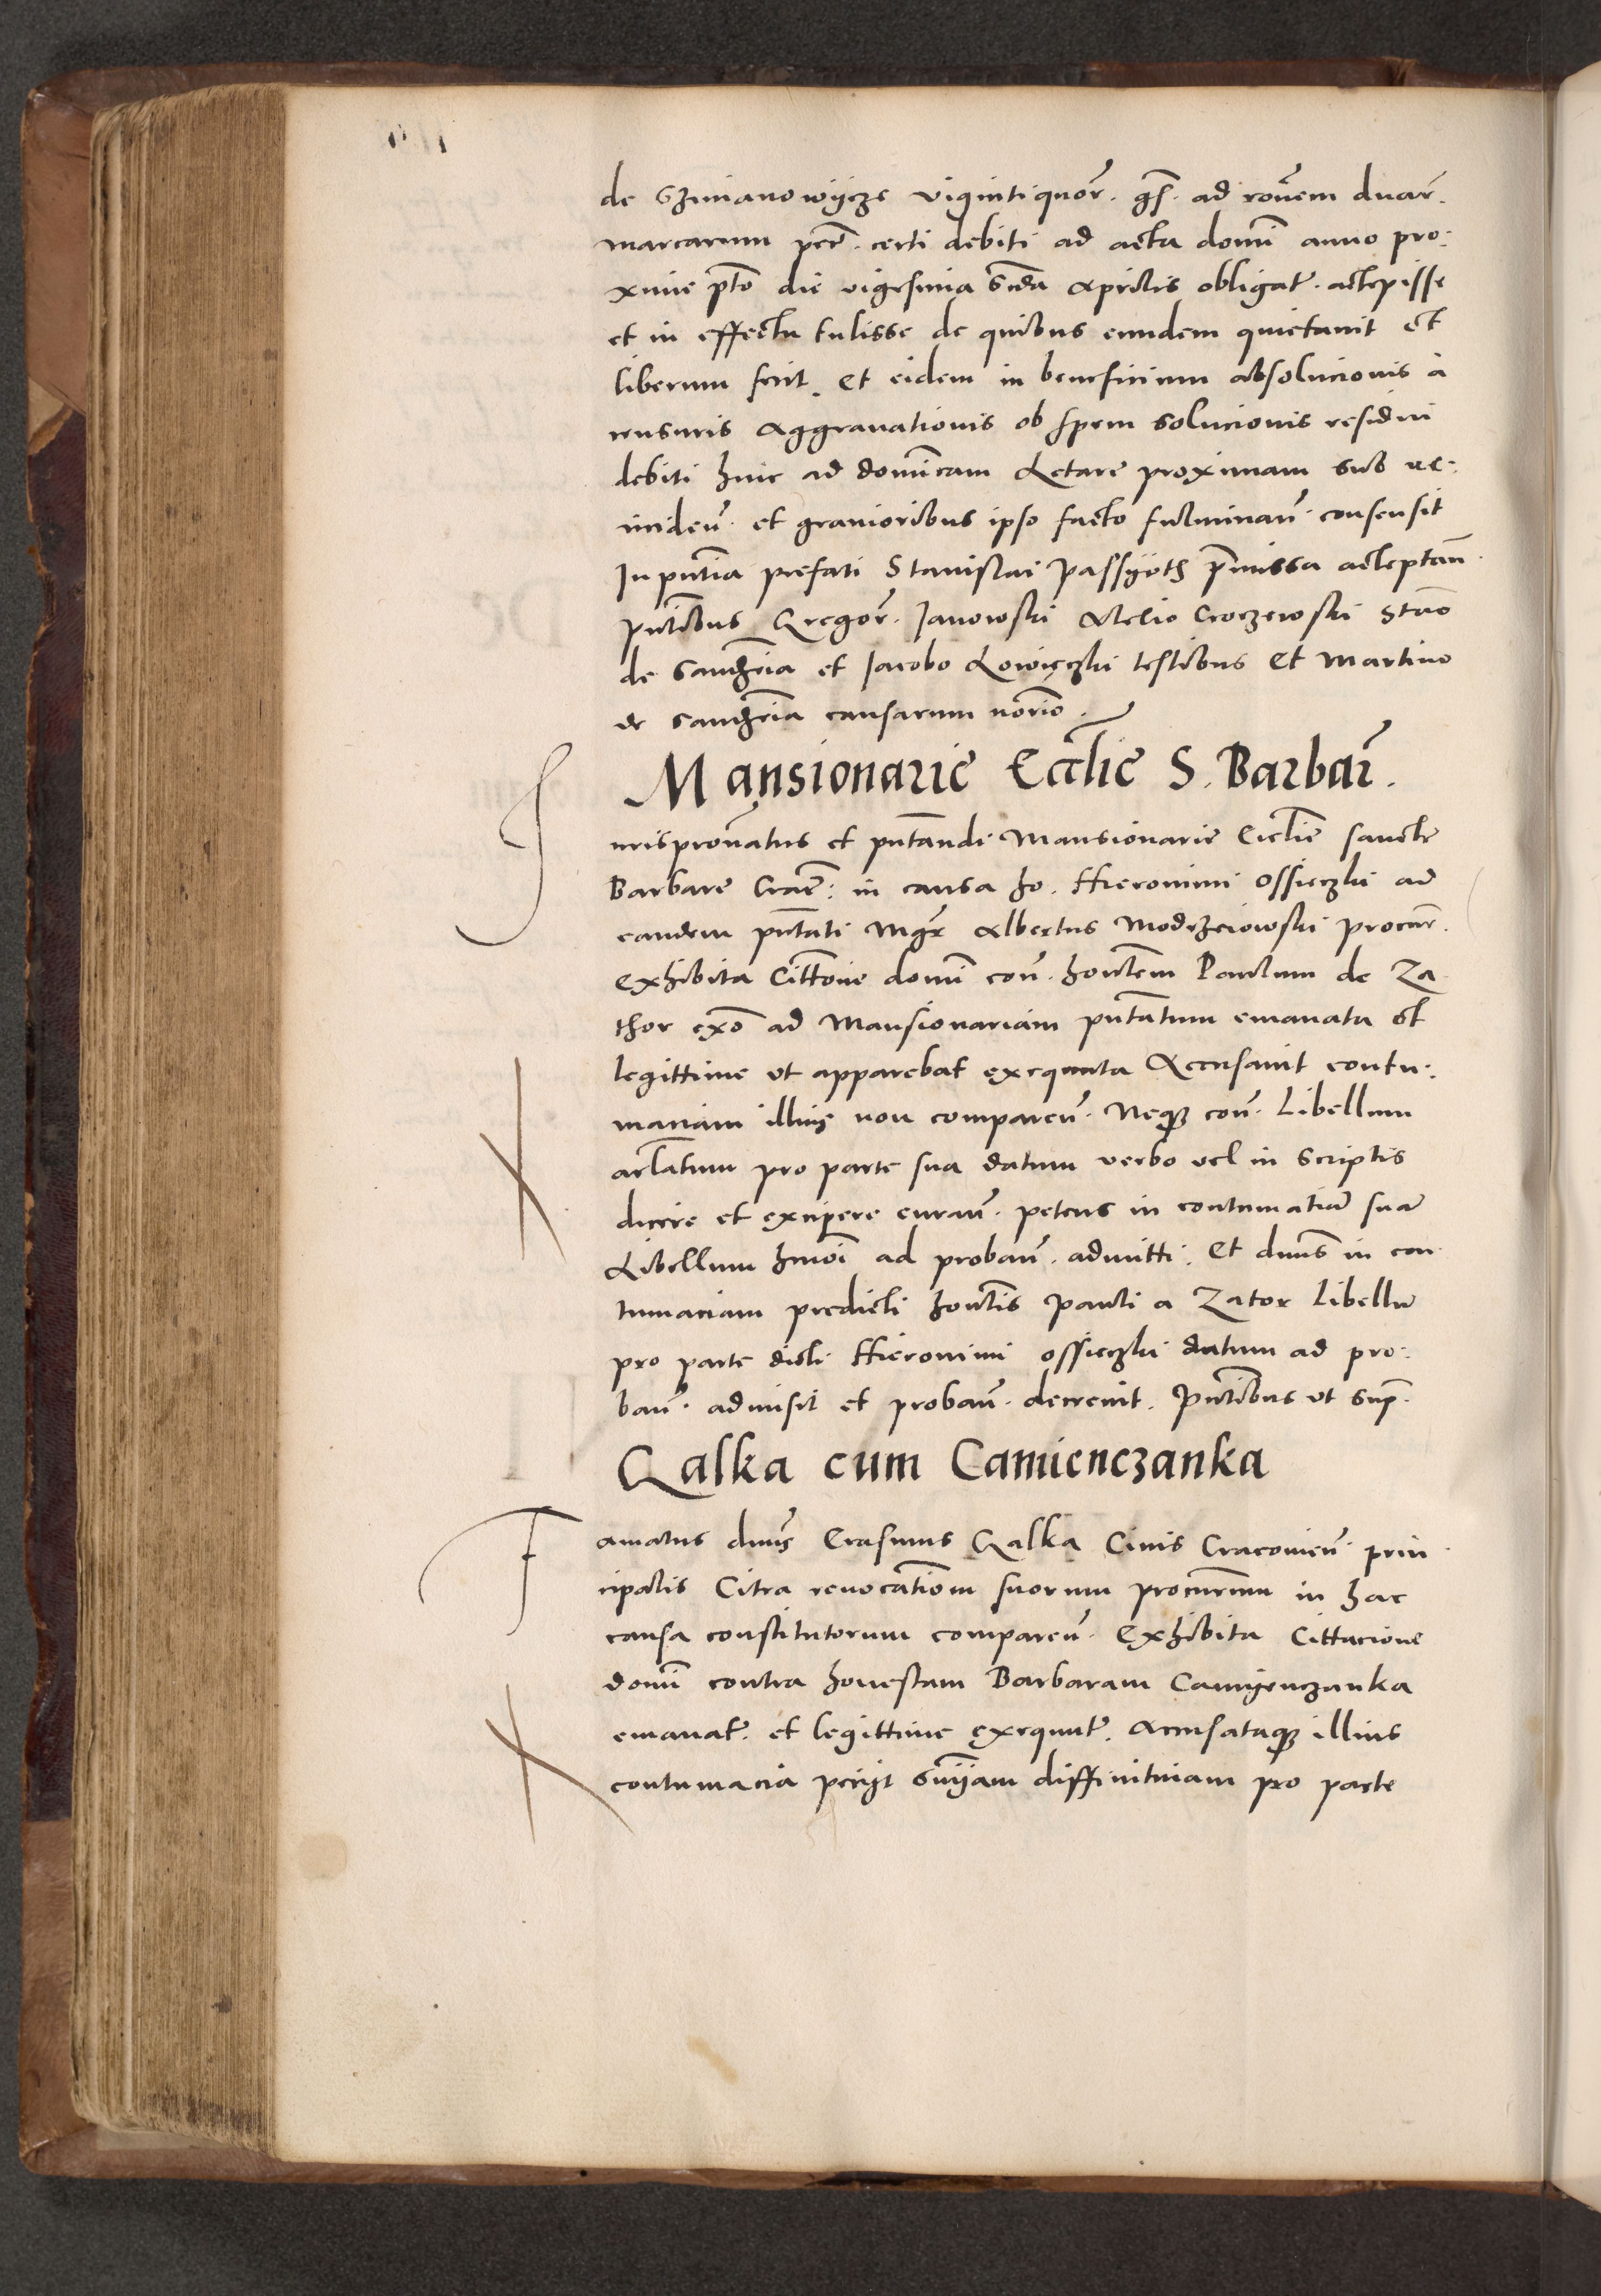 de Szimanowijcze viginti quor̄. gs̄. ad rōnem duar̄.
marcarum pec̄r. certi debiti ad acta domī anno pro:
xime pto̅ die vigesima sc̅da Aprilis obligat̄. accepisse
et in effectu tulisse de quibus eundem quietauit et
liberum fecit. Et eidem in beneficium absolucionis a
censuris Aggrauationis ob spem solucionis residui
debiti hinc ad domīcam Letare proximam sub re:
incideñ. et grauioribus ipso facto fulminañ. consensit
In pn̅tia prefati Stanislai Passijoth p̄missa acceptañ.
Pn̅tibus Gregor̄. Janowski Alexio Croczewski Stan̅o
de Sandzc̅ia et Jacobo Lowięczki testibus Et Martino
de Sandzc̅ia causarum no̅rio.
Mansionarie Eccl̅ie S. Barbar̄.
Jurisprona̅tus et pn̅tandi Mansionarie Eccl̅ie sancte
Barbare Crac̄: in causa ho. Hieronimi Ossieczki ad
eandem pn̅tati Mgr̄ Albertus Modrzeiowski procur̄.
Exhibita Citt̅one domī con̄. hon̅tem Paulum de Za
thor ex̅o ad Mansionariam pn̅tatum emanata et
legittime vt apparebat exequuta Accusauit contu:
maciam illius non compareñ. Neq̨ con̄. Libellum
arl̅atum pro parte sua datum verbo vel in scriptis
dicere et excipere curañ. petens in contumatiā suā
Libellum hmōi ad probañ. admitti. Et dn̅us in con
tumaciam predicti hon̅tis Pauli a Zator Libellū
pro parte dicti Hieronimi Ossieczki datum ad pro:
bañ. admisit et probañ. decreuit. Pn̅tibus vt sup̄.
Galka cum Camienczanka
Famatus dn̅us Erasmus Galka Ciuis Cracouieñ. prin
cipalis Citra reuocat̅iom suorum procur̅um in hac
causa constitutorum compareñ. Exhibita Cittacione
domī contra honestam Barbaram Camyenczanka
emanat̄. et legittime exequut̄. Accusataq̨ illius
contumacia pecijt sn̅ijam diffinitiuam pro parte